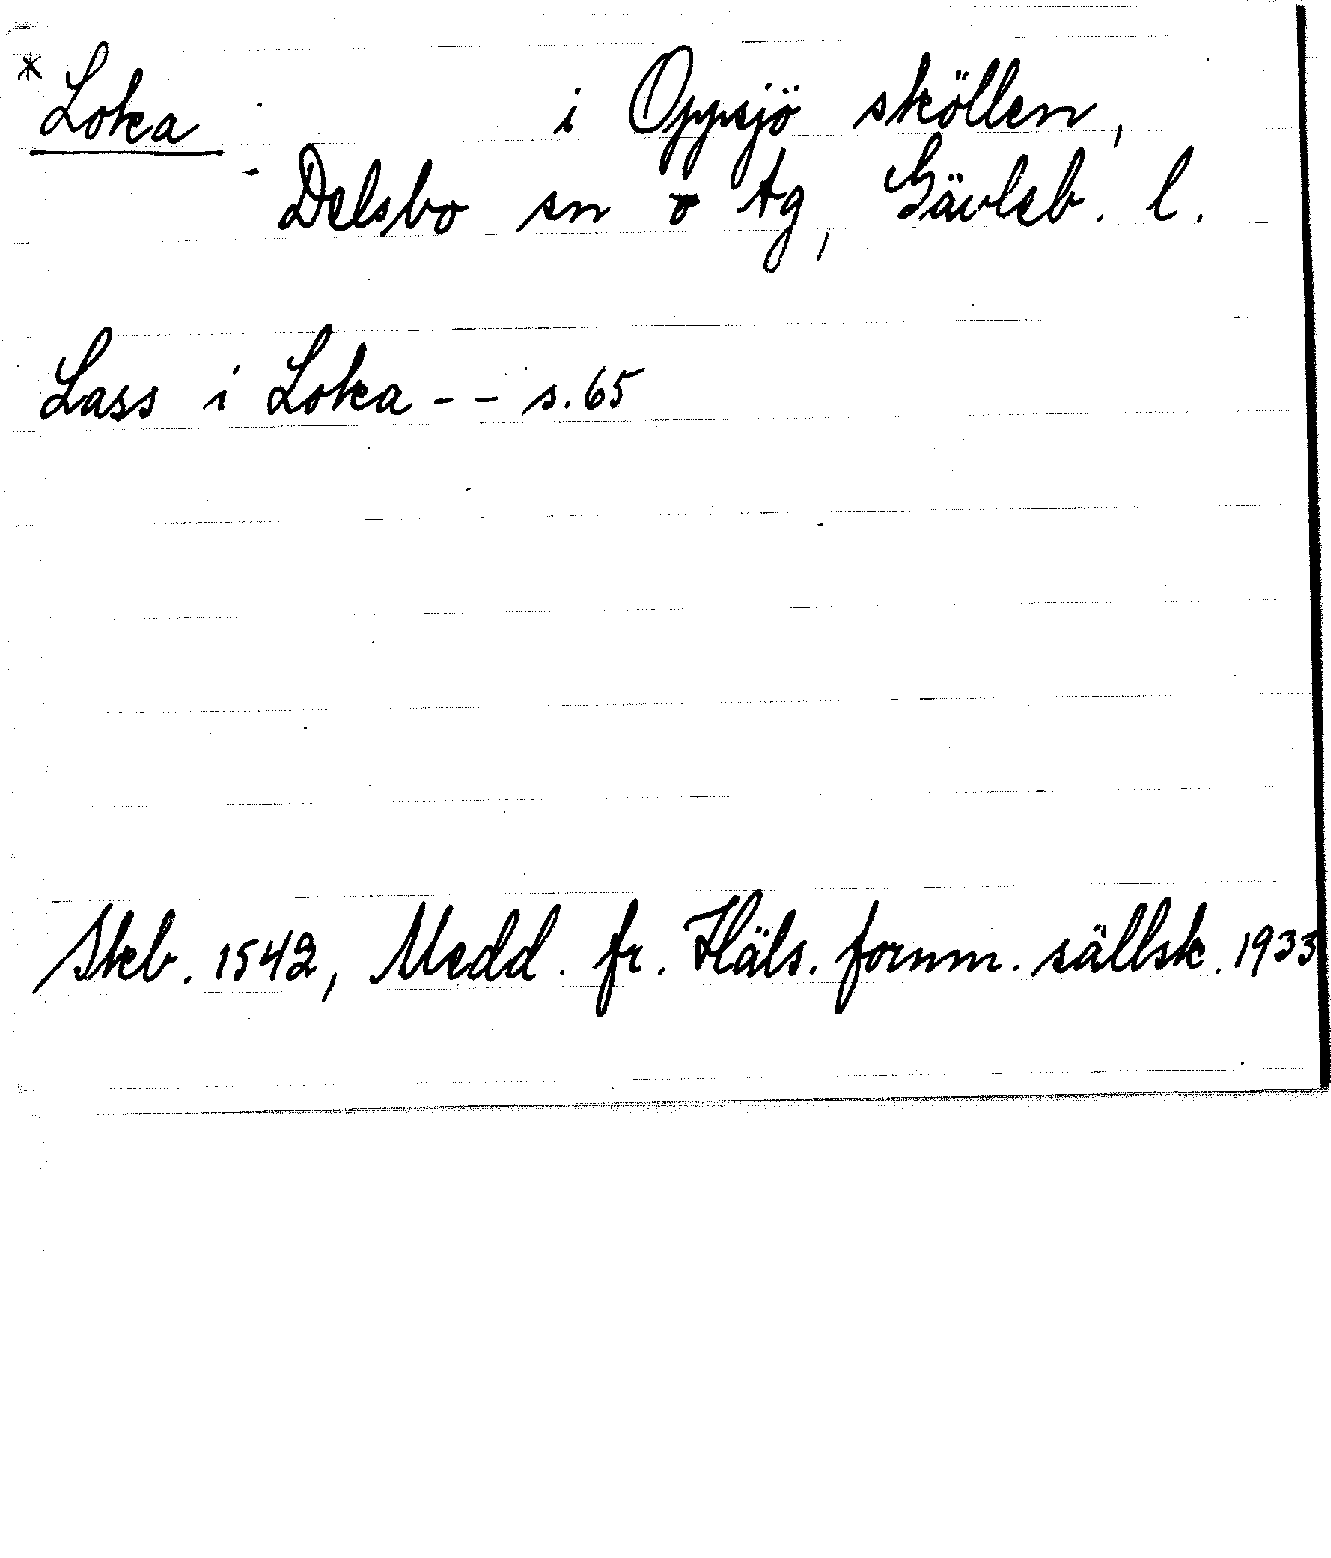 * Loka i Oppsjö sköllen,
Delsbo sn o tg, Gävleb. l.
Lass i Loka -- s. 65
Skb. 1542, Medd. fr. Häls. fornm. sällsk. 1933